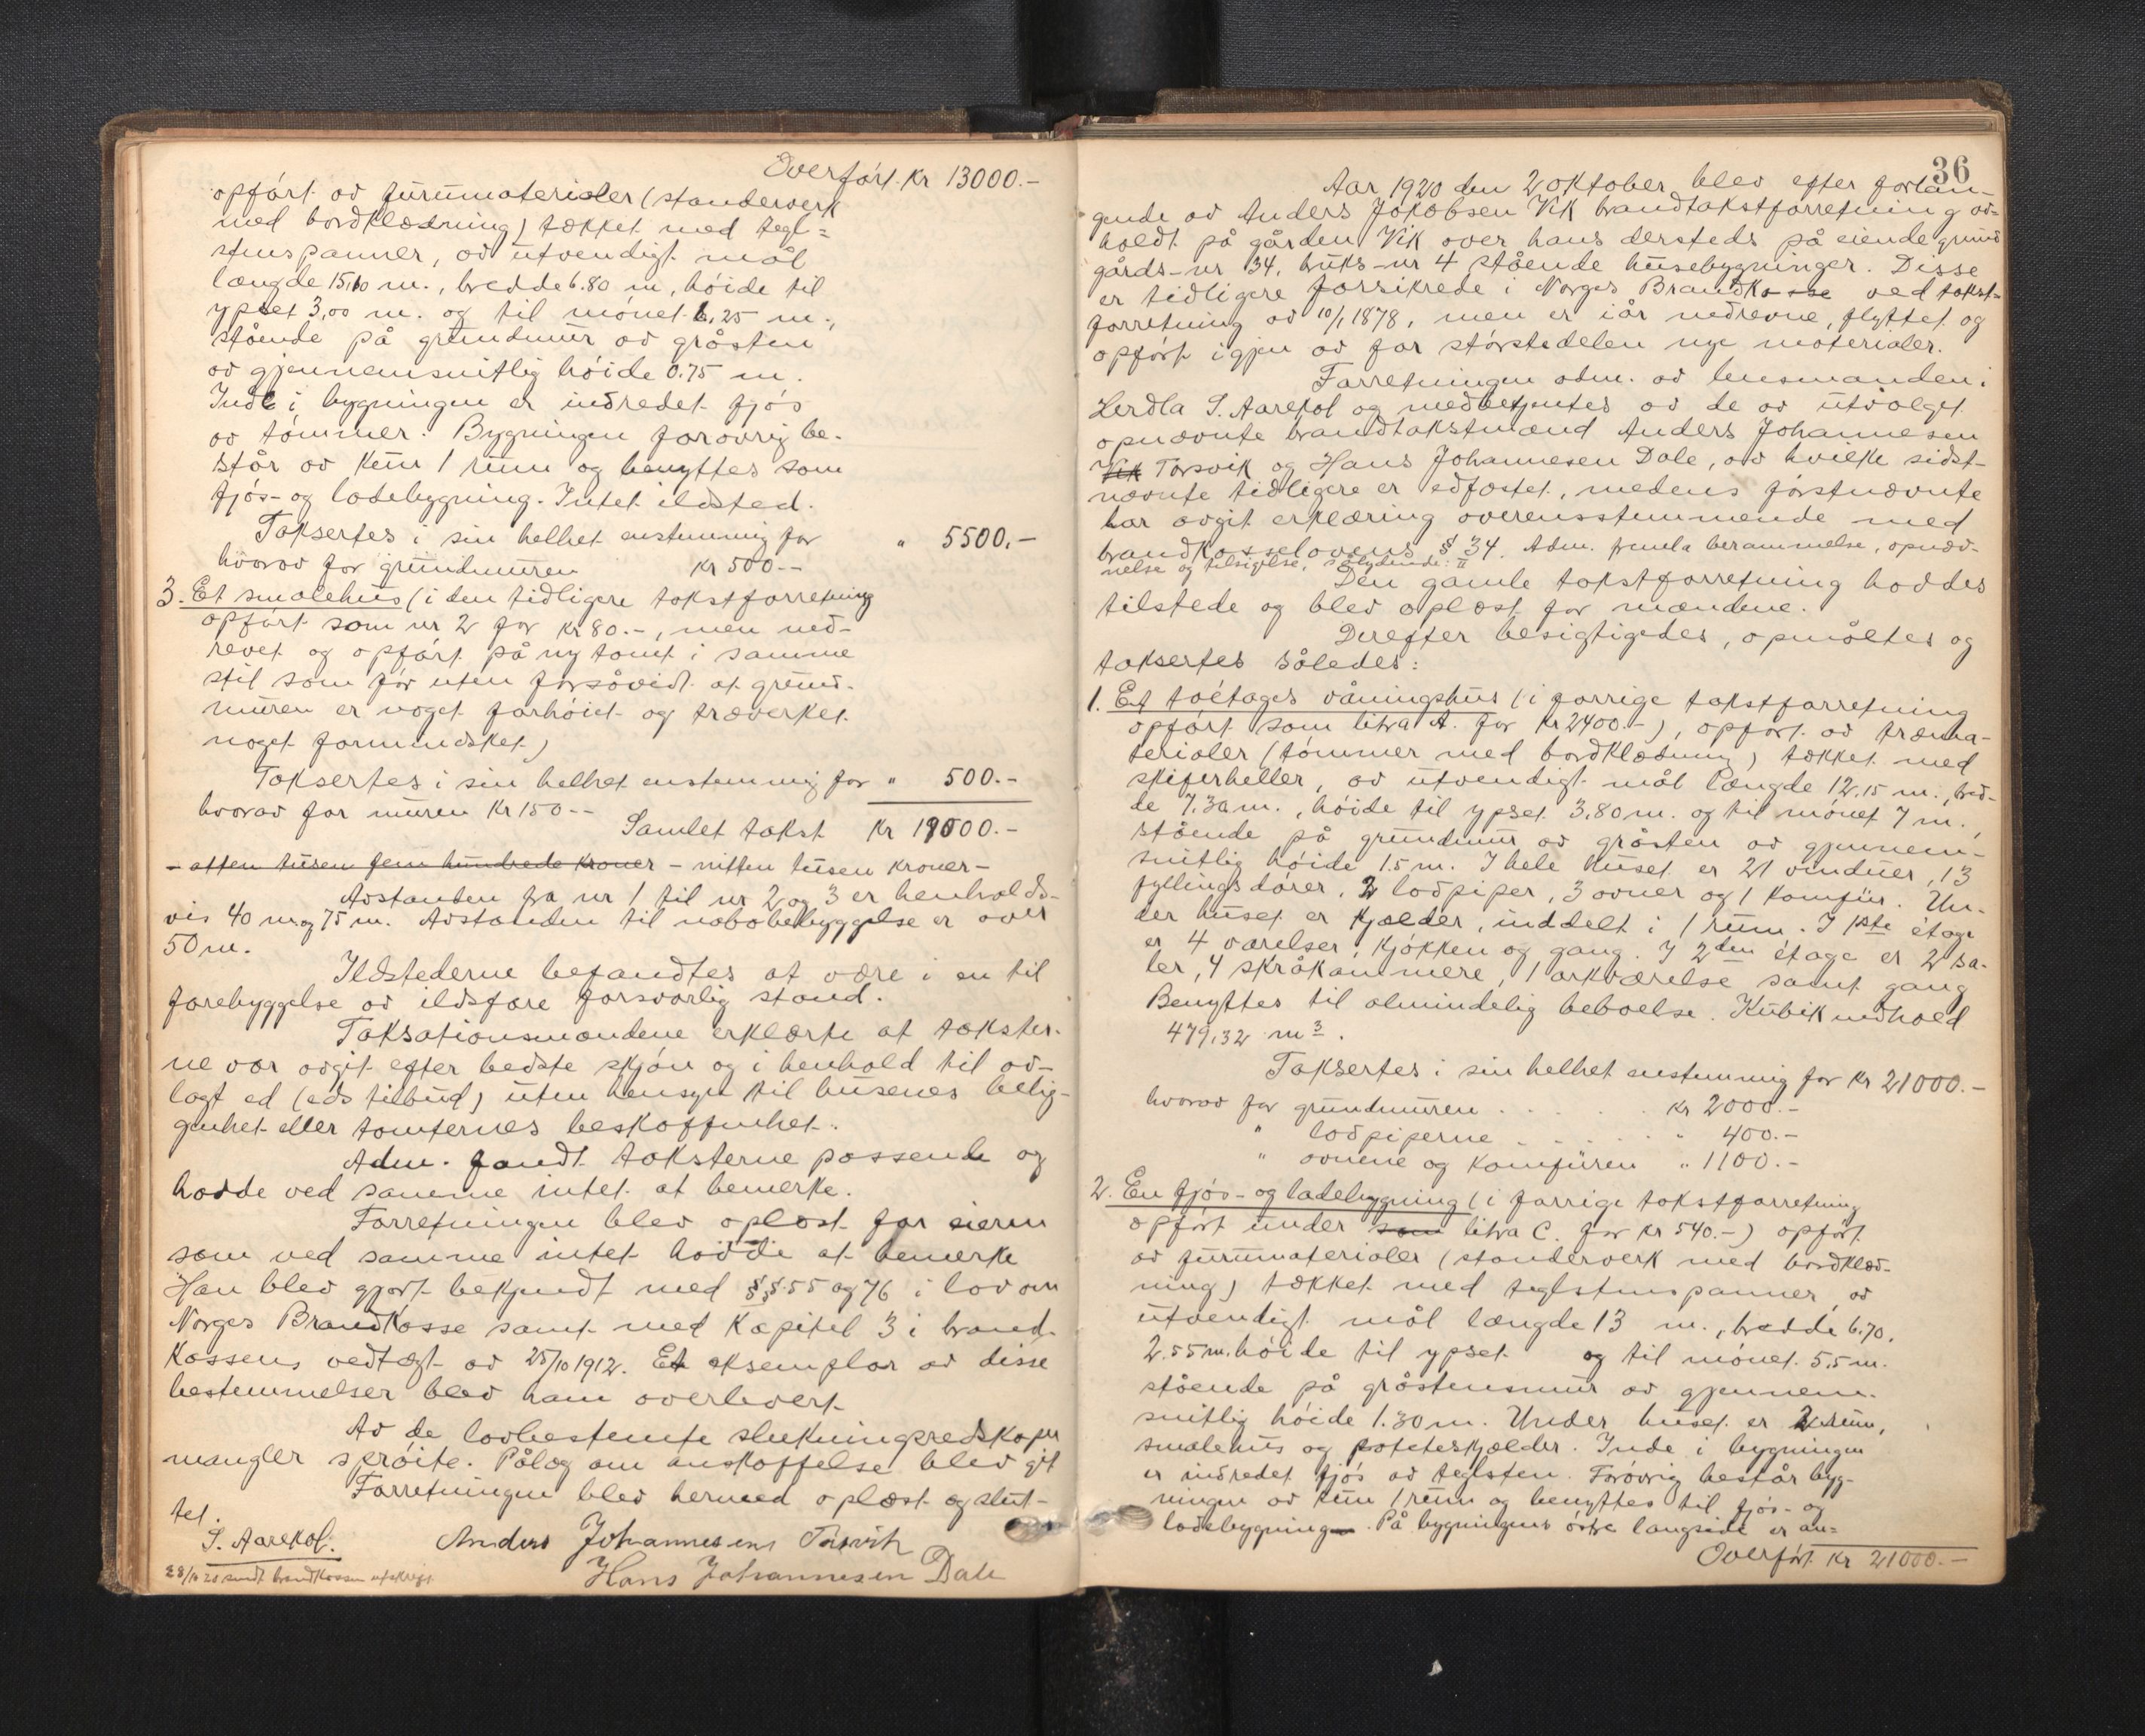 Overført kr 13000.-
opført av furumaterialer (standerverk
med bordklædning) tækket med tegl=
stenspanner, av utvendigt mål
længde 15,10 m., bredde 6.80 m, høide til
ypset 3,00 m. og til mønet 6,25 m.,
stående på grundmur av gråsten
av gjennemsnitlig høide 0.75 m.
Inde i bygningen er indredet fjøs
av tømmer. Bygningen forøvrig be-
står av kun 1 rum og benyttes som
fjøs- og ladebygning. Intet ildsted.
Taksertes i sin helhet enstemmig for " 5500,-
hvorav for grundmuren kr 500--
3. Et smalehus (i den tidligere takstforretning
opført som nr 2 for kr 80.-, men ned-
revet og opført på ny tomt i samme
stil som før uten forsåvidt at grund-
muren er noget forhøiet og træverket
noget formindsket)
Taksertes i sin helhet enstemmig for " 500.-
hvorav for muren kr 150--
Samlet takst kr 19000.-
- atten tusen fem hundrede kroner - nitten tusen kroner -
Avstanden fra nr 1 til nr 2 og 3 er henholds-
vis 40 m og 75 m. Avstanden til nabobebyggelse er over
50 m.
Ildstederne befandtes at være i en til
forebyggelse av ildsfare forsvarlig stand.
Taksationsmændene erklærte at takster-
ne var avgit efter bedste skjøn og i henhold til av-
lagt ed (eds tilbud) uten hensyn til husenes belig-
genhet eller tomternes beskaffenhet.
Adm. fandt taksterne passende og
hadde ved samme intet at bemerke.
Forretningen blev oplæst for eieren
som ved samme intet hadde at bemerke
Han blev gjort bekjendt med §§ 55 og 76 i lov om
Norges Brandkasse samt med Kapitel 3 i brand-
kassens vedtægt av 25/10 1912. Et eksemplar av disse
bestemmelser blev ham overlevert.
Av de lovbestemte slukningsredskaper
mangler sprøite. Pålæg om anskaffelse blev git
Forretningen blev hermed oplæst og slut-
tet.
S. Aarekol. Anders Johannesen Torsvik
Hans Johannesen Dale
28/10 20 sendt brandkassen utskrift
36
Aar 1920 den 2 oktober blev efter forlan-
gende av Anders Jakobsen Vik brandtakstforretning av=
holdt på gården Vik over hans dersteds på eiende grund
gårds-nr 34, bruks-nr 4 stående husebygninger. Disse
er tidligere forsikrede i Norges Brandkasse ved takst=
forretning av 10/1 1878, men er iår nedrevne, flyttet og
opført igjen av for størstedelen nye materialer.
Forretningen adm. av lensmanden i
Herdla S. Aarekol og medbetjentes av de av utvalget
opnævnte brandtakstmænd Anders Johannesen
Vik Torsvik og Hans Johannesen Dale, av hvilke sidst-
nævnte tidligere er edfæstet, medens førstnævnte
har avgit erklæring overensstemmende med
brandkasselovens § 34. Adm. fremla berammelse, opnæv-
nelse og tilsigelse, sålydende:
Den gamle takstforretning haddes
tilstede og blev oplæst for mændene.
Derefter besigtigedes, opmåltes og
taksertes således:
1. Et toétages våningshus (i forrige takstforretning
opført som litra A. for kr 2400.-), opført av træma-
terialer (tømmer med bordklædning) tækket med
skiferheller, av utvendigt mål længde 12.15 m., bred-
de 7.30 m., høide til ypset 3.80 m. og til mønet 7 m.,
stående på grundmur av gråsten av gjennem-
snitlig høide 1.5 m. I hele huset er 21 vinduer, 13
fyllingsdører, 2 lodpiper, 3 ovner og 1 komfur. Un-
der huset er kjælder, inddelt i 1 rum. I 1ste étage
er 4 værelser, kjøkken og gang. I 2den étage er 2 sa-
ler, 4 skråkammere, 1 arkværelse samt gang
Benyttes til almindelig beboelse. Kubikindhold
479,32 m3.
Taksertes i sin helhet enstemmig for kr 21000.-
hvorav for grundmuren . . . . . kr 2000.-
" lodpiperne . . . . . " 400.-
" ovnene og komfuren " 1100.-
2. En fjøs- og ladebygning (i forrige takstforretning
opført under som litra C. for kr 540.-) opført
av furumaterialer (standerverk med bordklæd-
ning) tækket med teglstenspanner, av
utvendigt mål længde 13 m., bredde 6.70,
2.55 m. høide til ypset og til mønet 5.5 m.
stående på gråstensmur av gjennem-
snitlig høide 1.30 m. Under huset er 2 rum,
smalehus og poteteskjælder. Inde i bygningen
er indredet fjøs av teglsten. Forøvrig består byg-
ningen av kun 1 rum og benyttes til fjøs- og
ladebygning. På bygningens østre langside er an=
Overført kr 21000.-